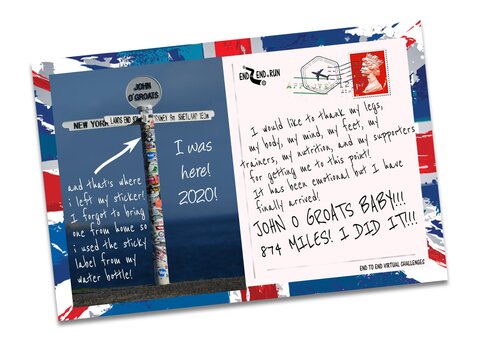 JOHN
O'GROATS
NEW YORK
LANDS END
ORKNEY 8m SHETLAND 110m
I was
here!
2020!
and that's where
i left my sticker!
I forgot to bring
one from home so
i used the sticky
label from my
water bottle!
END 2 END RUN
I would like to thank my legs,
my body, my mind, my feet, my
trainers, my nutrition, and my supporters
for getting me to this point!
It has been emotional but I have
finally arrived!
JOHN O GROATS BABY!!!
874 MILES! I DID IT!!!
END TO END VIRTUAL CHALLENGES